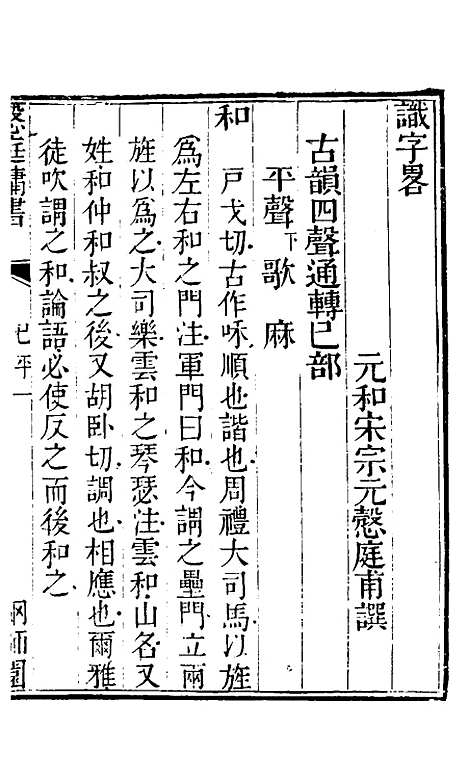 識字畧
元和宋宗元慤庭甫譔
古韻四聲通轉巳部
平聲下歌麻
和
戸戈切古作咊順也諧也周禮大司馬以旌
爲左右和之門注軍門曰和今謂之壘門立兩
旌以爲之大司樂雲和之琴瑟注雲和山名又
姓和仲和叔之後又胡卧切調也相應也爾雅
徒吹謂之和論語必使反之而後和之
慤庭庸書
巳平一
網師園